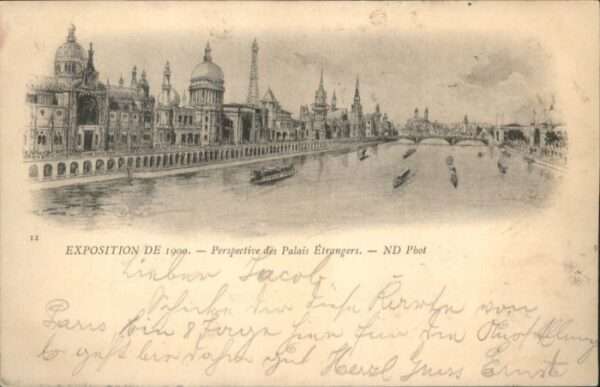 12
EXPOSITION DE 1900. — Perspective des Palais Étrangers. — ND Phot
Lieben Jacob
Schicke dir diese Karte von
Paris bin 8 Tage hier für die Ausstellung
Es geht Herzl Gruss Ernst